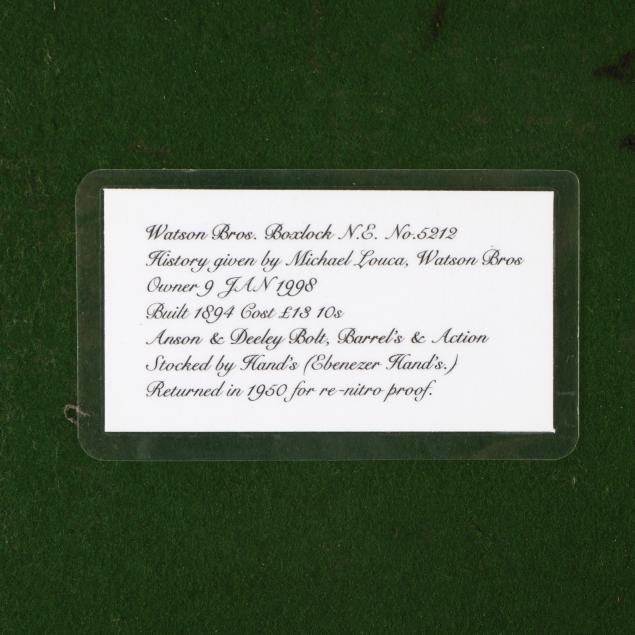 Watson Bros. Boxlock N.E. No.5212
History given by Michael Louca, Watson Bros
Owner 9 JAN 1998
Built 1894 Cost £13 10s
Anson & Deeley Bolt, Barrel's & Action
Stocked by Hand's (Ebenezer Hand's.)
Returned in 1950 for re-nitro proof.